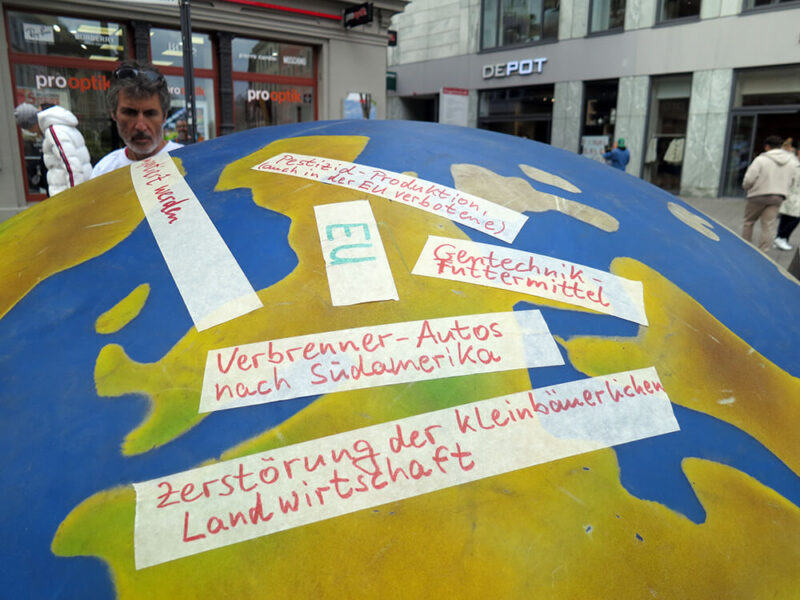 Ray-Ban
BURBERRY
pro optik
pierre cardin
MOSCHINO
pro optik
DEPOT
werden
Pestizid-Produktion,
(auch in der EU verboten)
EU
Gentechnik-
futtermittel
Verbrenner-Autos
nach Südamerika
Zerstörung der kleinbäuerlichen
Landwirtschaft